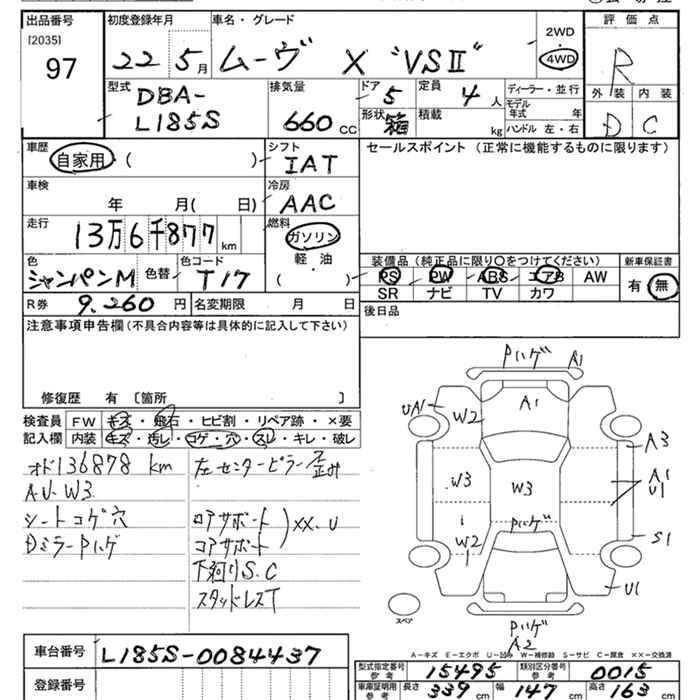 出品番号 初度登録年月 車名・グレード 2WD 評価点
[2035] 97 22 5月 ムーヴ X "VSⅡ" 4WD R
型式 排気量 ドア 定員 ディーラー・並行 外装 内装
DBA- 5 4人 モデル年式 年 D C
L185S 660 CC 形状 箱 積載 kg ハンドル 左・右
車歴 シフト セールスポイント (正常に機能するものに限ります)
自家用 ( ) IAT
車検 冷房
年 月( 日) AAC
走行 燃料
13万6千877 km ガソリン
色 色コード 軽・油 装備品 (純正品に限り○をつけてください) 新車保証書
シャンパンM 色替 T17 ( ) PS PW ABS エアB AW 有 無
SR ナビ TV カワ
R券 9.260 円 名変期限 月 日 後日品
注意事項申告欄 (不具合内容等は具体的に記入して下さい)
修復歴 有 [箇所 ]
検査員 FW キズ・飛石・ヒビ割・リペア跡・×要
記入欄 内装 キズ・汚レ・コゲ・穴・スレ・キレ・破レ
オド136878 km 左センターピラー歪み
AU.W3
シートコゲ穴 コアサポート
DミラーPハゲ コアサポート XX.U
下廻りS.C
スタッドレスT
Pハゲ A1
UA1 W2 A1
A3
W3 W3 A1
U1
W2 Pハゲ S1
U1
スペア Pハゲ
A2
A-キズ E-エクボ U-凹み W-補修跡 S-サビ C-腐食 ××-交換済
車台番号 L185S-0084437 型式指定番号 参考 15495 類別区分番号 参考 0015
登録番号 車庫証明用 参考 長さ 339 cm 幅 147 cm 高さ 163 cm